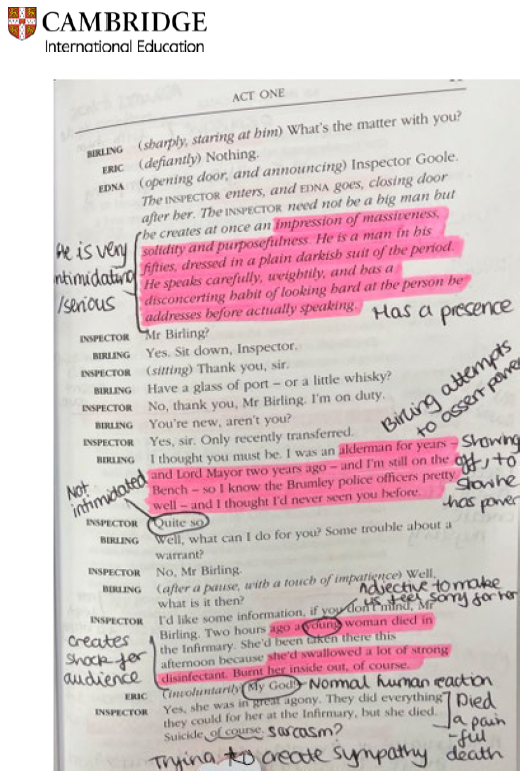 CAMBRIDGE
International Education
ACT ONE
BIRLING (sharply, staring at him) What's the matter with you?
ERIC (defiantly) Nothing.
EDNA (opening door, and announcing) Inspector Goole.
The INSPECTOR enters, and EDNA goes, closing door
after her. The INSPECTOR need not be a big man but
he creates at once an impression of massiveness,
solidity and purposefulness. He is a man in his
fifties, dressed in a plain darkish suit of the period.
He speaks carefully, weightily, and has a
disconcerting habit of looking hard at the person he
addresses before actually speaking.
He is very
intimidating
/serious
Has a presence
INSPECTOR Mr Birling?
BIRLING Yes. Sit down, Inspector.
INSPECTOR (sitting) Thank you, sir.
BIRLING Have a glass of port – or a little whisky?
INSPECTOR No, thank you, Mr Birling. I'm on duty.
BIRLING You're new, aren't you?
INSPECTOR Yes, sir. Only recently transferred.
Birling attempts
to assert power
BIRLING I thought you must be. I was an alderman for years –
and Lord Mayor two years ago – and I'm still on the
Bench – so I know the Brumley police officers pretty
well – and I thought I'd never seen you before.
Showing
off, to
show he
has power
Not
intimidated
INSPECTOR Quite so.
BIRLING Well, what can I do for you? Some trouble about a
warrant?
INSPECTOR No, Mr Birling.
BIRLING (after a pause, with a touch of impatience) Well,
what is it then?
Adjective to make
us feel sorry for her
INSPECTOR I'd like some information, if you don't mind, Mr
Birling. Two hours ago a young woman died in
the Infirmary. She'd been taken there this
afternoon because she'd swallowed a lot of strong
disinfectant. Burnt her inside out, of course.
creates
shock for
audience
ERIC (involuntarily) My God!
Normal human reaction
INSPECTOR Yes, she was in great agony. They did everything
they could for her at the Infirmary, but she died.
Suicide, of course.
sarcasm?
Died
a pain
-ful
death
Trying to create sympathy